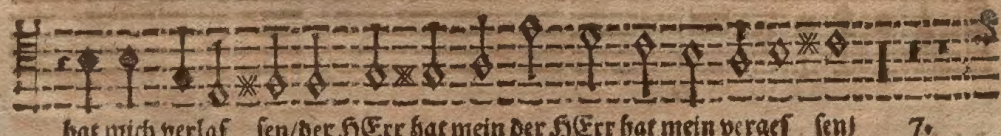 hat mich verlas sen/der HErr hat mein der HErr hat mein verges sen/ 7.